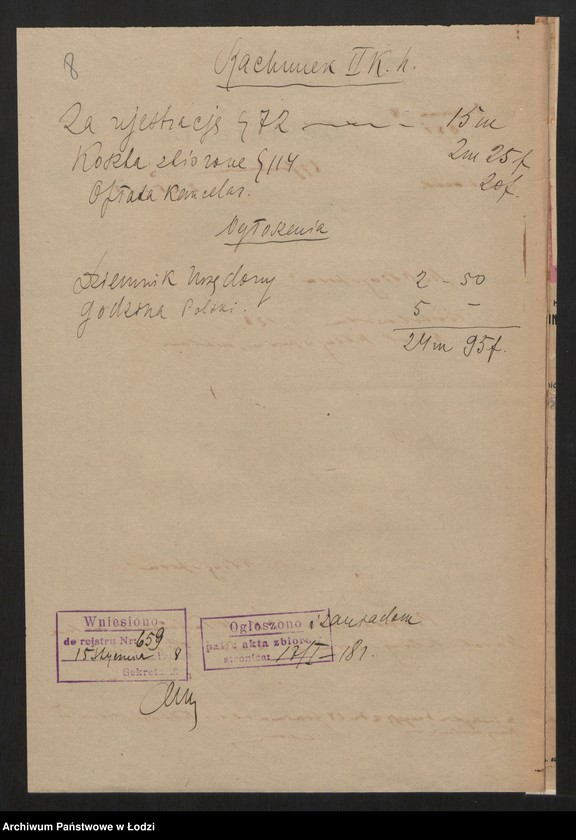 8
Rachunek II K. h.
Za rejestrację § 72 — 15 m
Koszta zbiorowe § 114 2m 25f
Opłata kancelar. 20f.
Ogłoszenia
Dziennik Urzędowy 2 - 50
Godzina Polski. 5 -
24m 95f.
Wniesiono
do rejstru Nr. 659
15 stycznia 8
Sekret.
Ogłoszono i zawiadom
patrz akta zbior.
stronica: 17/I - 18 r.
Archiwum Państwowe w Łodzi